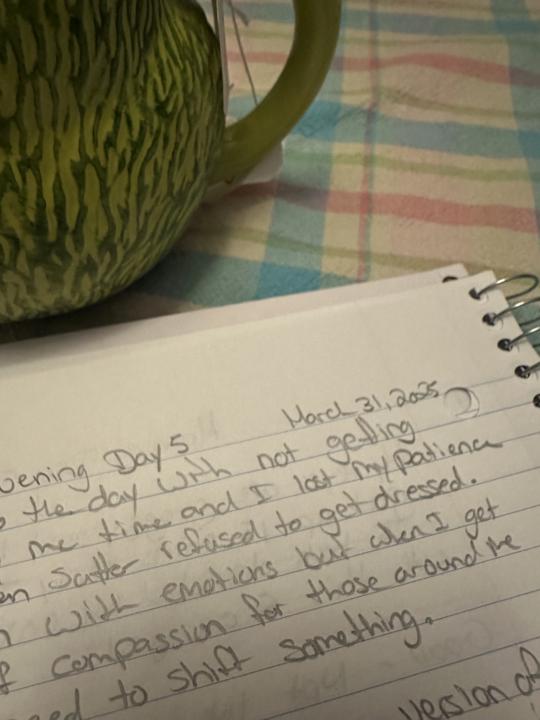 March 31, 2025
vening Day 5
the day with not getting
me time and I lost my patience
en refused to get dressed.
with emotions but when I get
f compassion for those around me
ed to shift something.
version of